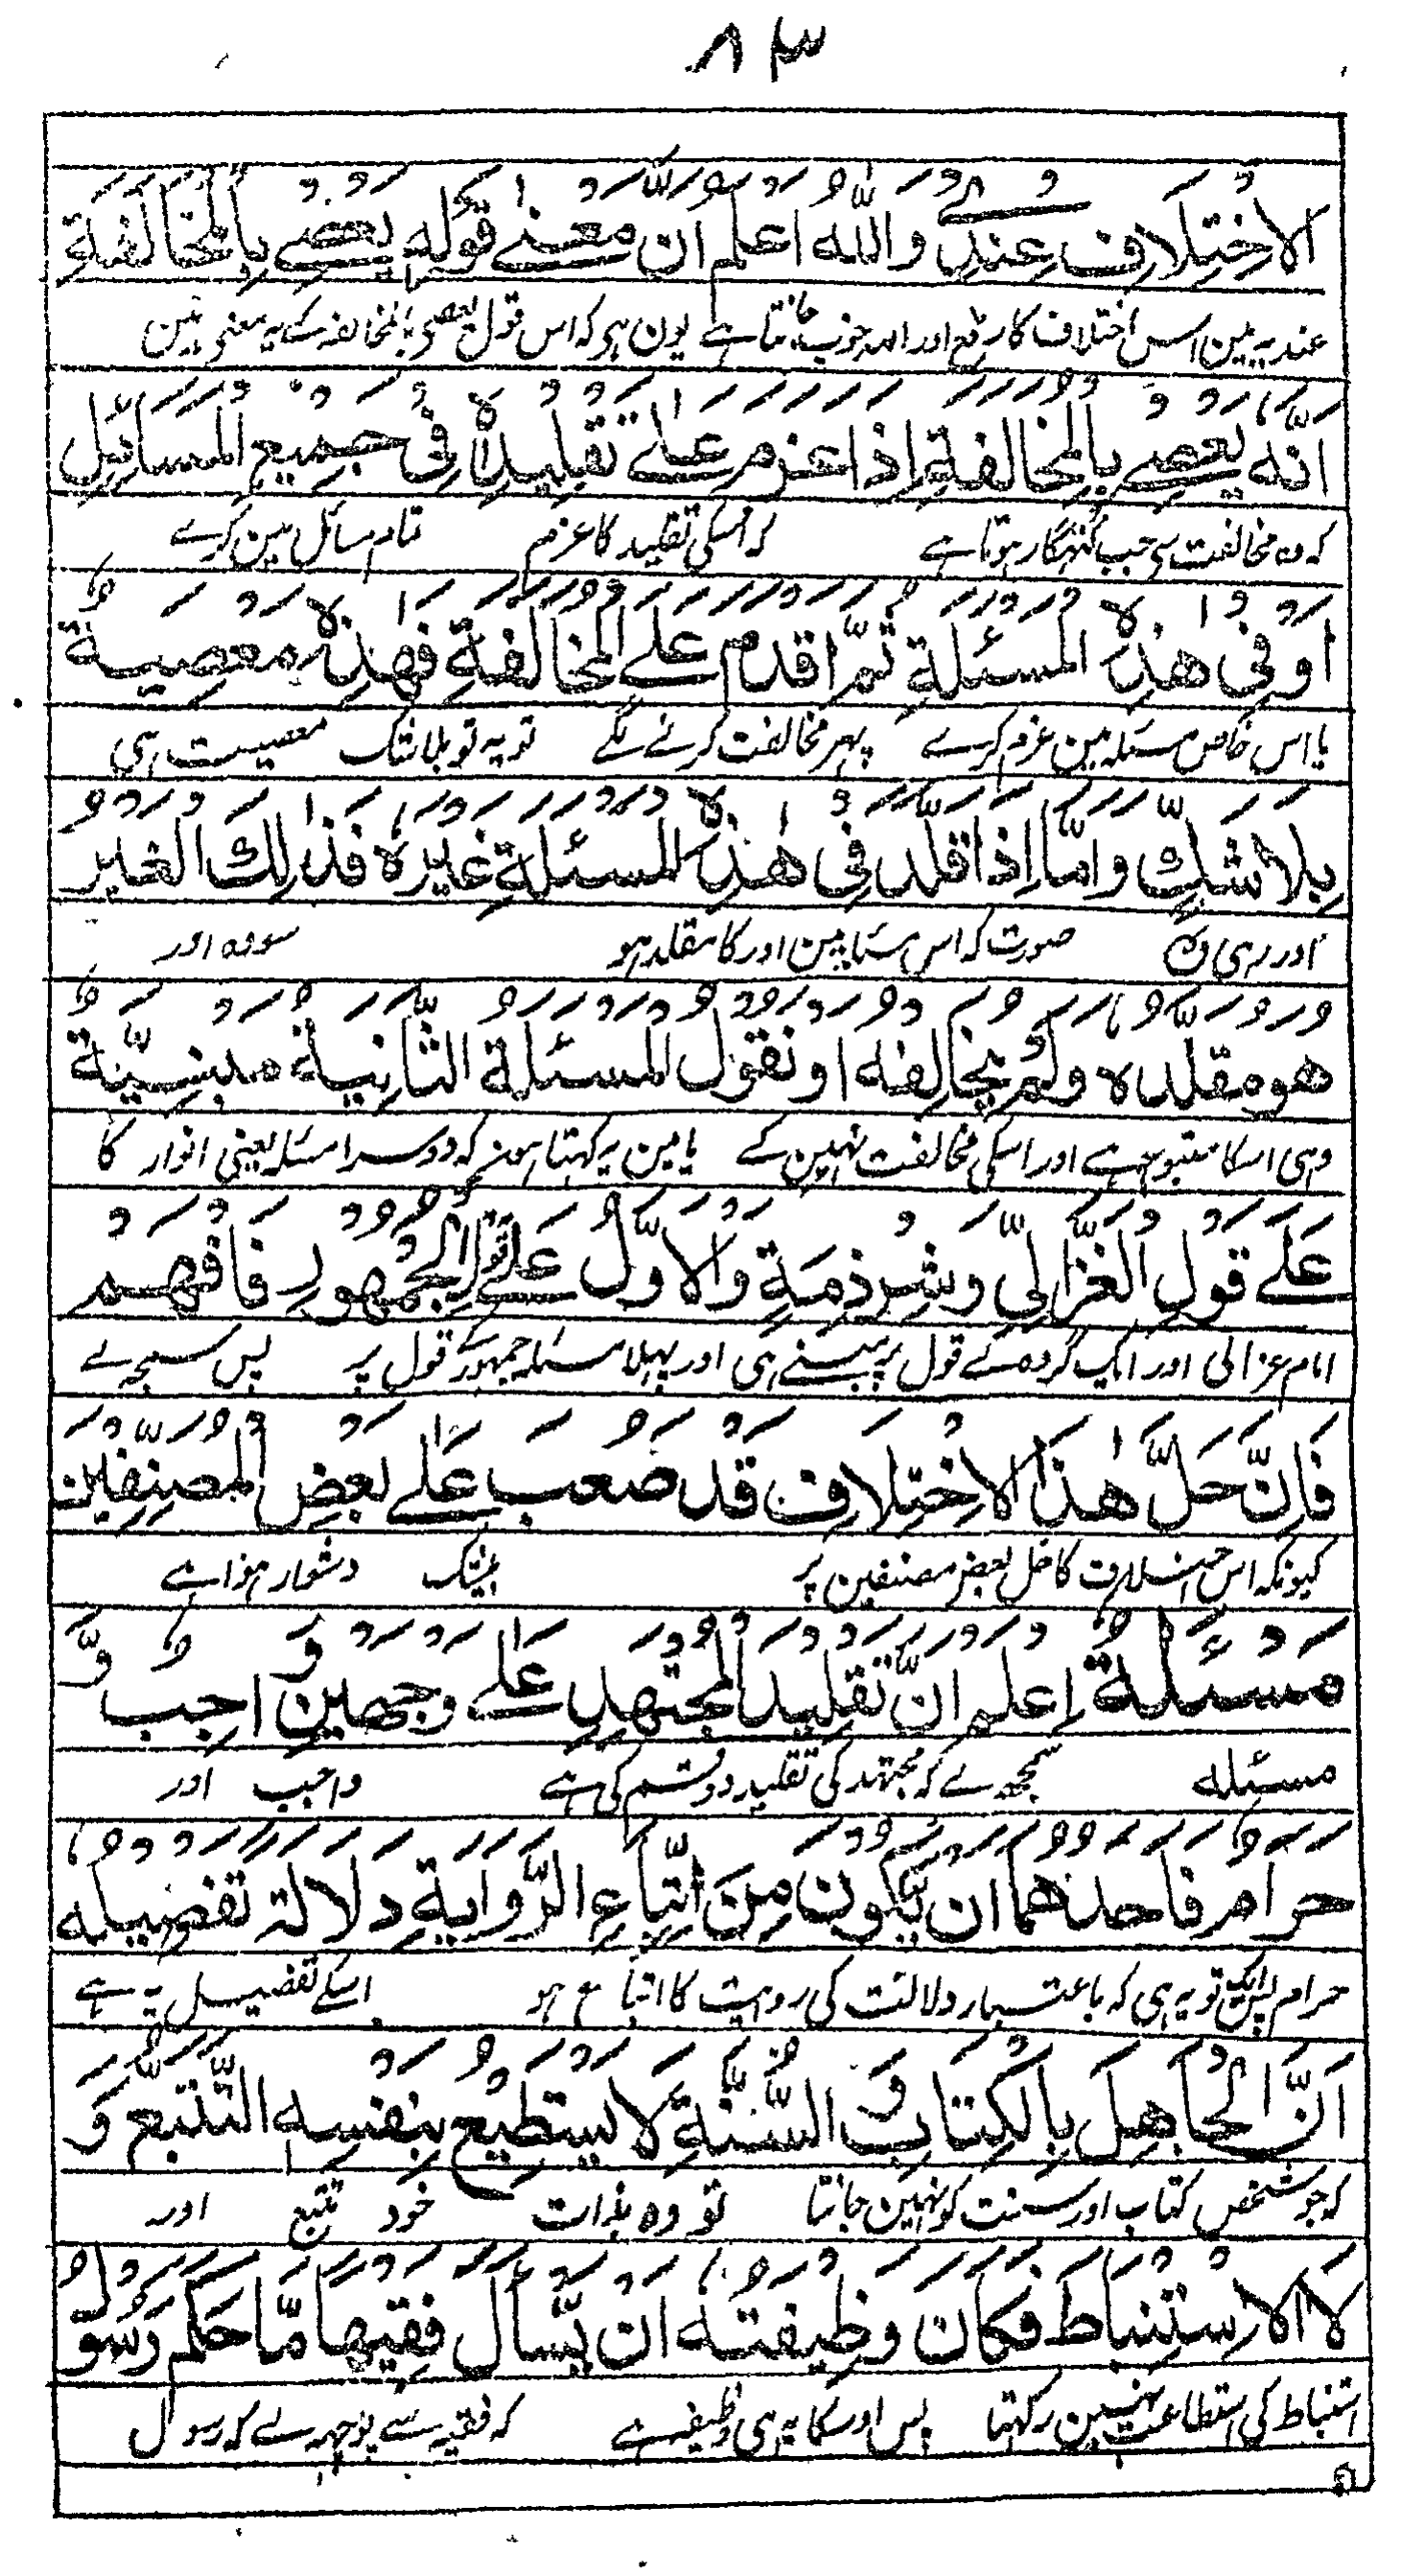 ٨٣
الاختلاف عندی والله اعلم ان معنی قوله یعصی بالمخالفة
عندیہ مین اس اختلاف کا رفع اور اللہ خوب جانتا ہے یون ہی کہ اس قول یعصی بالمخالفہ کے یہ معنی ہین
انّه یعصی بالمخالفةِ اذا عزم علی تقلیده فی جمیع المسائل
کہ وہ مخالفت سی جب گنہگار ہوتا ہے کہ اسکی تقلید کا عزم تمام مسائل مین کرے
او فی هذه المسئلةِ ثمّ اقدم علی المخالفةِ فهذه معصیة
یا اس خاص مسئلہ مین عزم کرے پہر مخالفت کرنے لگے تو یہ تو بلا شک معصیت ہی
بلا شكٍّ وامّا اذا قلّد فی هذه المسئلةِ غیره فذلك الغیر
اور رہی وہ صورت کہ اس مسئلہ مین اور کا مقلد ہو سو وہ اور
هو مقلّده ولم یخالفه او نقول المسئلة الثانیة مبنیّة
وہی اسکا متبوع ہے اور اسکی مخالفت نہین کے یا مین یہ کہتا ہون کہ دوسرا مسئلہ یعنی انوار کا
عَلی قولِ الغزالیّ وشرذمةٍ والاوّل علی قول الجمهورِ فافهم
امام غزالی اور ایک گروہ کے قول پر مبنے ہی اور پہلا مسئلہ جمہور کے قول پر پس سمجہ لے
فَاِنَّ حَلَّ هٰذا الاختلاف قد صعب عَلی بعضِ المصنفین
کیونکہ اس اختلاف کا حل بعض مصنفین پر بیشک دشوار ہوا ہے
مسئلة اعلم انّ تقلید المجتهد علی وجهین واجب وَّ
مسئلہ سمجھ لے کہ مجتہد کی تقلید دو قسم کی ہے واجب اور
حرام فاحدهما ان یّکون مِنَ اتّباعِ الرّوایةِ دلالة تفصیله
حرام پس ایک تو یہ ہی کہ باعتبار دلالت کی روایت کا اتباع ہو اسکے تفصیل یہ ہے
انّ الجاهلَ بالکتابِ و السُّنّةِ لا یستطیع بنفسه التّتبّع وَ
کہ جو شخص کتاب اور سنت کو نہین جانتا تو وہ بذات خود تتبع اور
لا الاستنباط فکان وظیفته ان یّسأل فقیها مّا حکم رسول
استنباط کی استطاعت نہین رکہتا پس اوسکا یہ ہی وظیفہ ہے کہ فقیہ سے پوچہہ لے کہ رسول